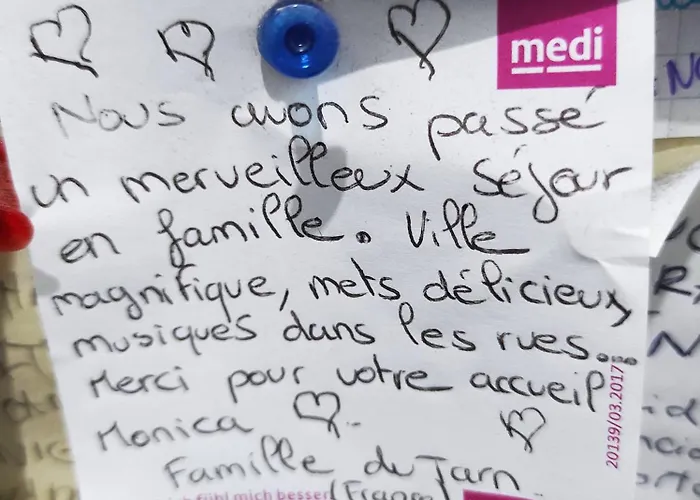 medi
Nous avons passé
un merveilleux séjour
en famille. Ville
magnifique, mets délicieux,
musiques dans les rues....
Merci pour votre accueil
Monica
Famille du Tarn
(France)
20139/03.2017
ich fühl mich besser